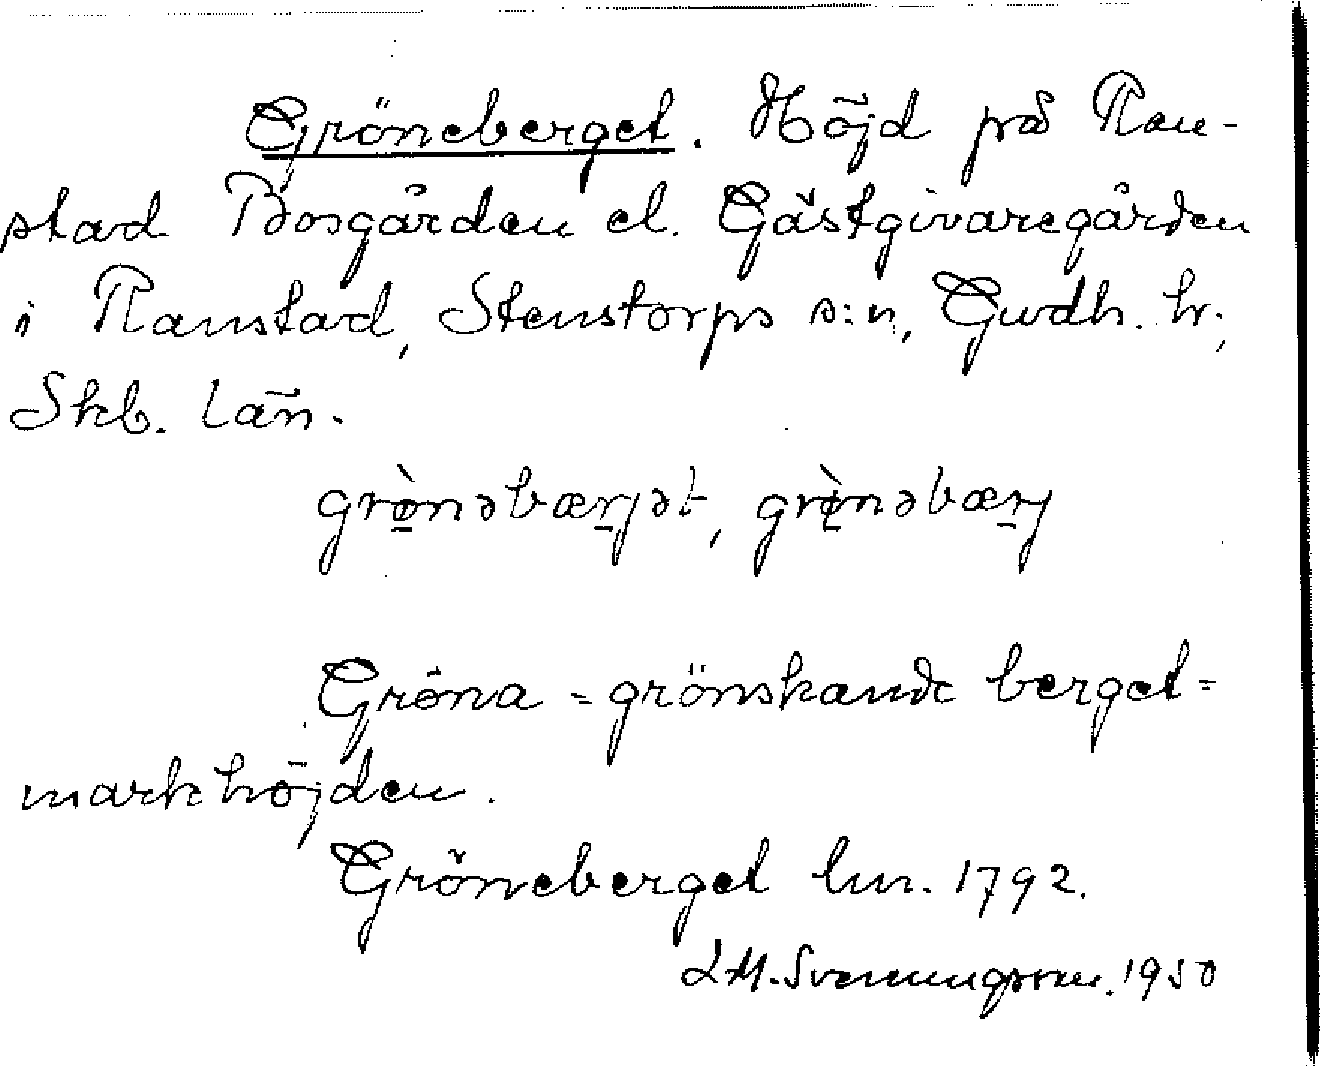 Gröneberget. Höjd på Ran-
stad Bosgården el. Gästgivaregården
i Ranstad, Stenstorps s:n, Gudh. hr.,
Skb. län.
grò̠nəbær̠jət, grè̠nəbær̠j
Gröna = grönskande berget =
markhöjden.
Gröneberget lm. 1792.
L M. Svenungsson. 1950